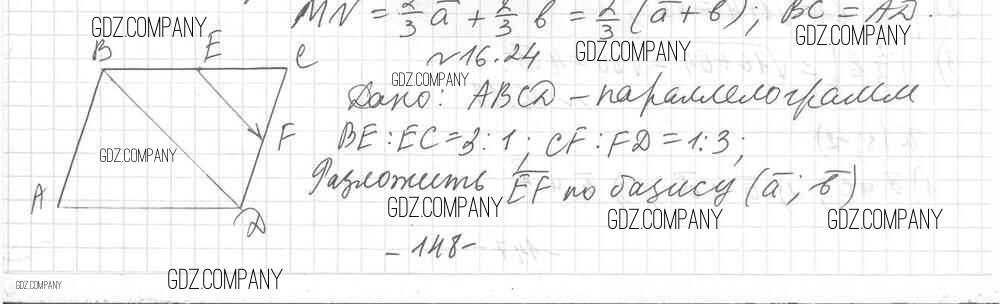 MN = 2/3 a̅ + 2/3 b̅ = 2/3 (a̅ + b̅); BC = AD.
GDZ.COMPANY GDZ.COMPANY GDZ.COMPANY
B E C
№16.24
GDZ.COMPANY
Дано: ABCD – параллелограмм
F
BE : EC = 3 : 1; CF : FD = 1 : 3;
GDZ.COMPANY
Разложить EF по базису (a̅; b̅)
A D
GDZ.COMPANY GDZ.COMPANY GDZ.COMPANY
- 148 -
GDZ.COMPANY
GDZ.COMPANY